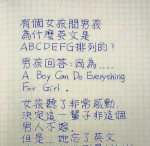 有個女孩問男孩
為什麼英文是
ABCDEFG排列的?
男孩回答:因為....
A Boy Can Do Everything
For Girl.
女孩聽了非常感動
決定這一輩子非這個
男人不嫁.
但是...她忘了英文